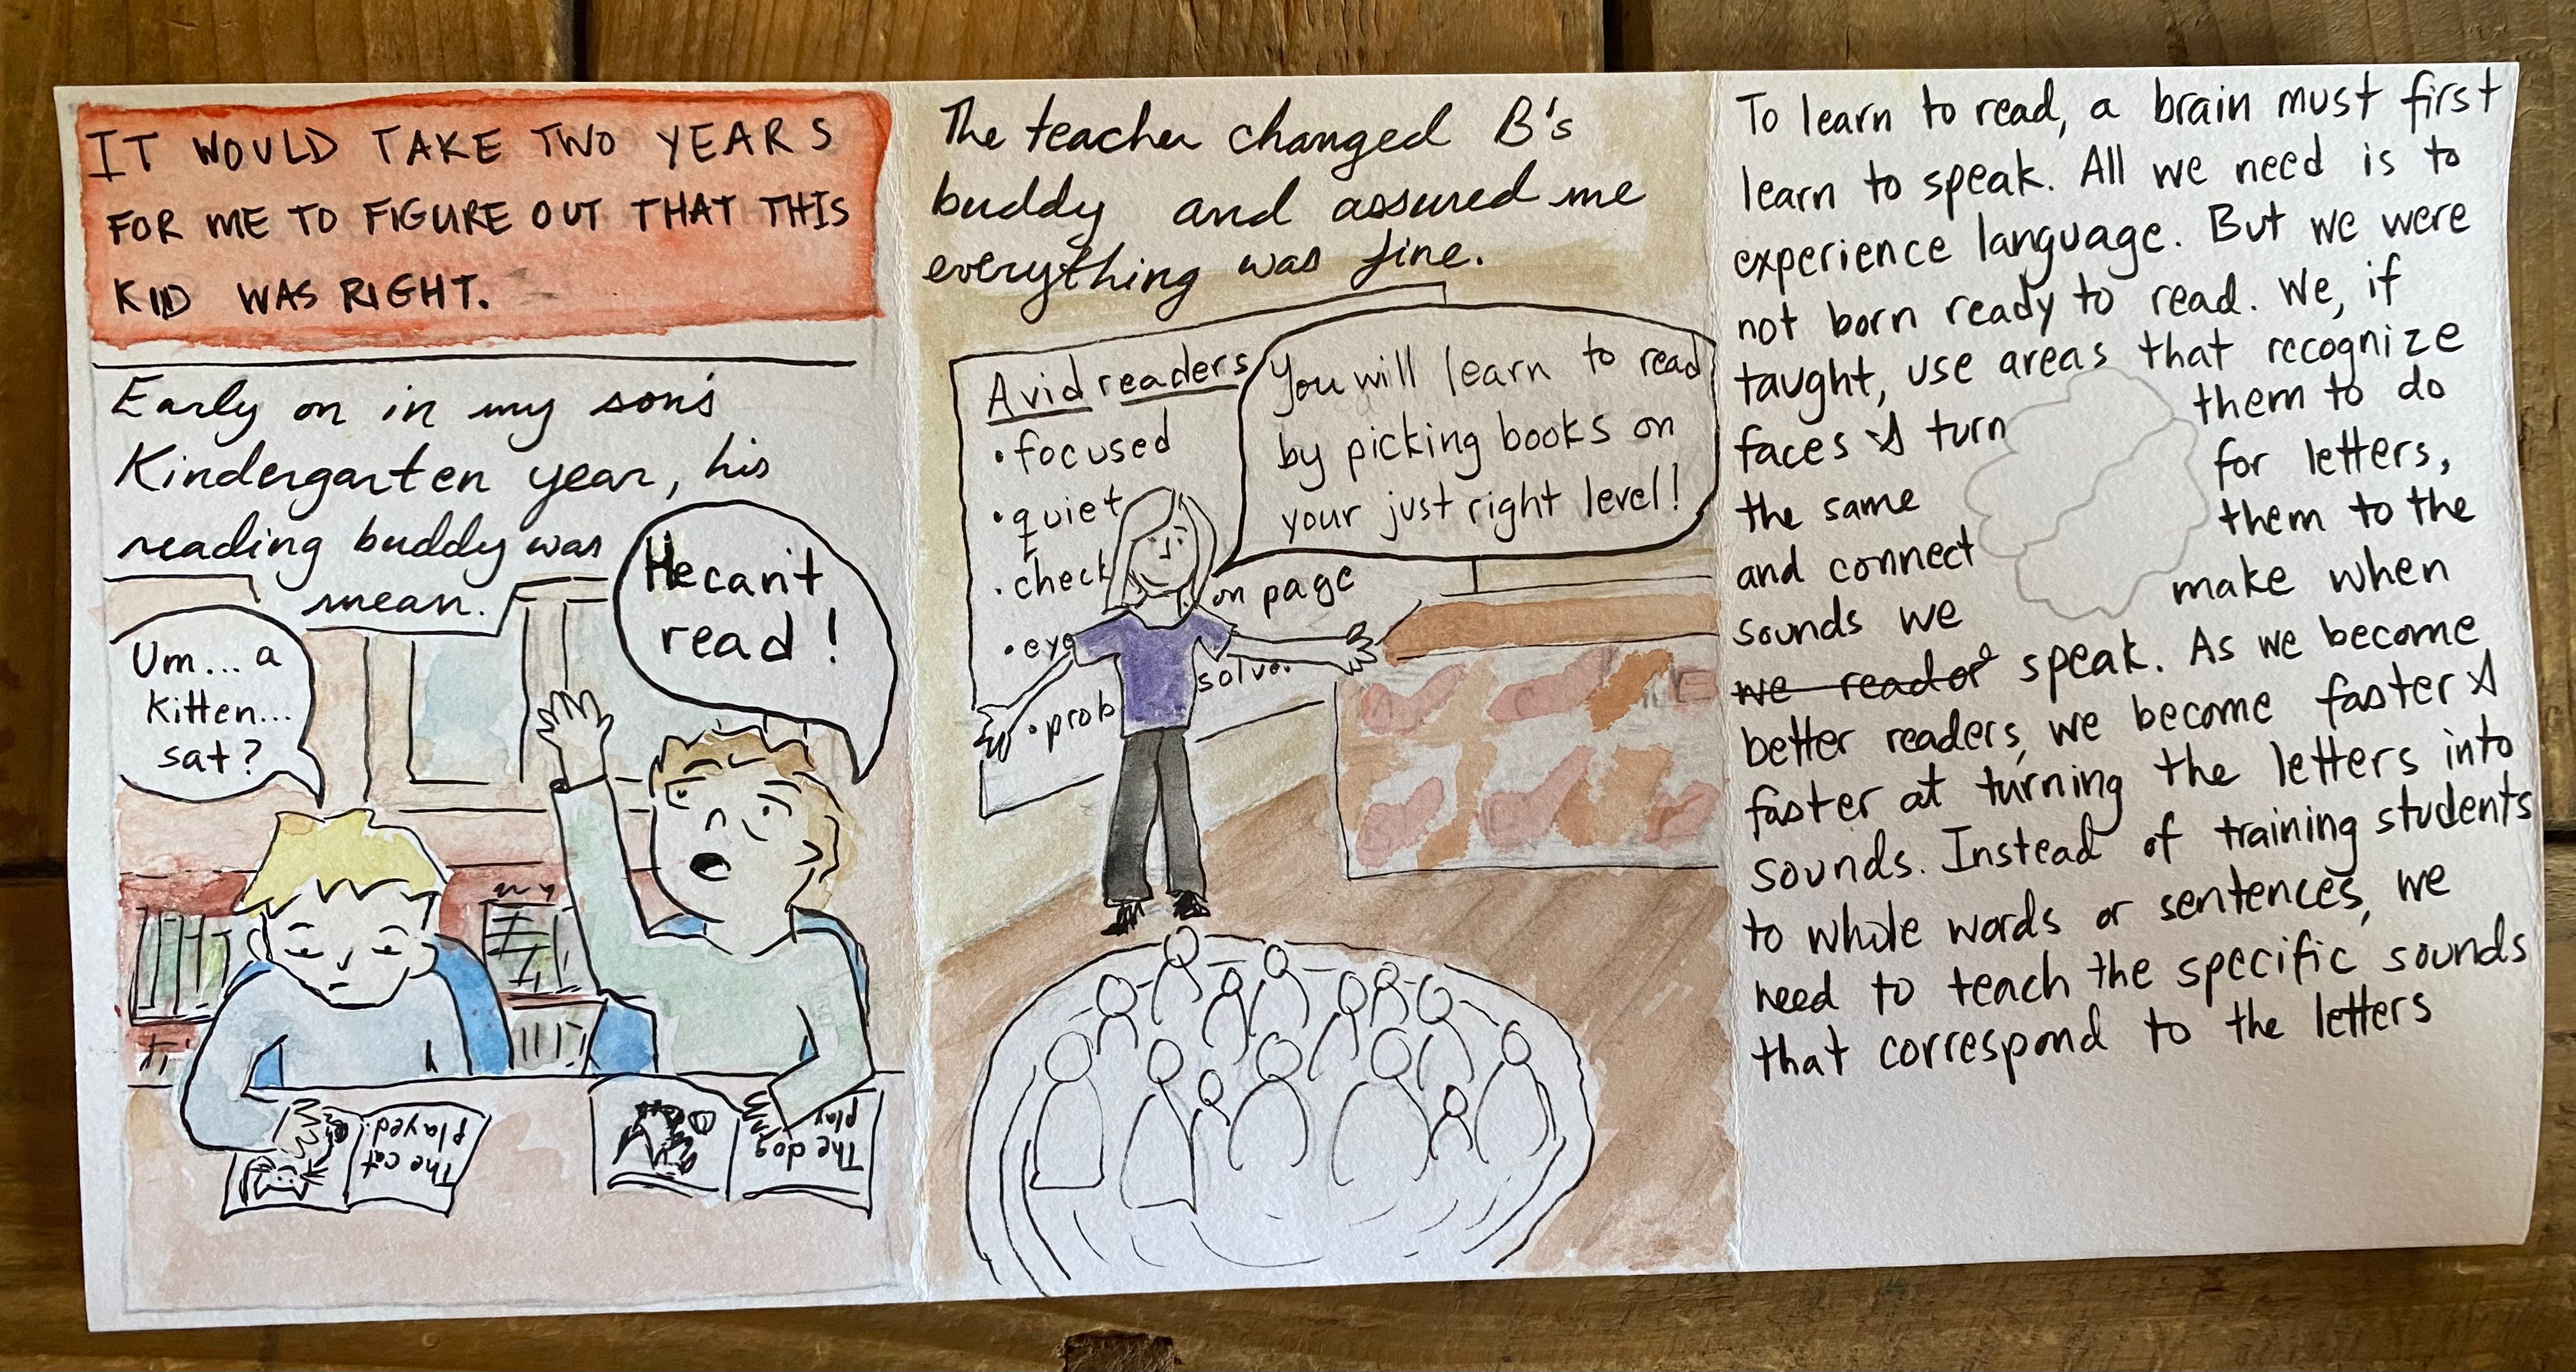 IT WOULD TAKE TWO YEARS
FOR ME TO FIGURE OUT THAT THIS
KID WAS RIGHT.
Early on in my son's
Kindergarten year, his
reading buddy was
mean.
He can't
read!
Um... a
kitten...
sat?
The cat
played.
The dog
play
The teacher changed B's
buddy and assured me
everything was fine.
Avid readers
• focused
• quiet
• check
on page
• eye
solve.
• prob
You will learn to read
by picking books on
your just right level!
To learn to read, a brain must first
learn to speak. All we need is to
experience language. But we were
not born ready to read. We, if
taught, use areas that recognize
faces & turn them to do
the same for letters,
and connect them to the
sounds we make when
we read or speak. As we become
better readers, we become faster &
faster at turning the letters into
sounds. Instead of training students
to whole words or sentences, we
need to teach the specific sounds
that correspond to the letters